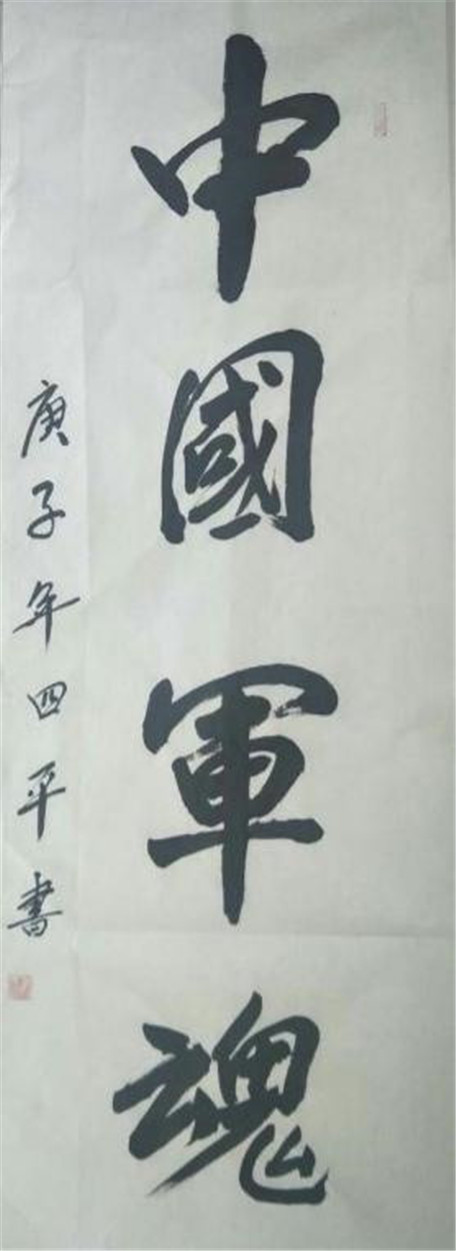 中國軍魂
庚子年四平書